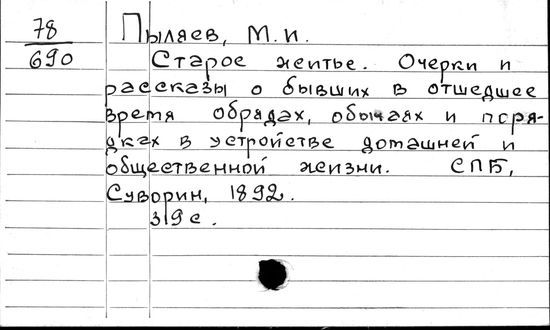 78
690
Пыляев, М.И.
Старое житье. Очерки и
рассказы о бывших в отшедшее
время обрядах, обычаях и поря-
дках в устройстве домашней и
общественной жизни. СПБ,
Суворин, 1892.
319 с.